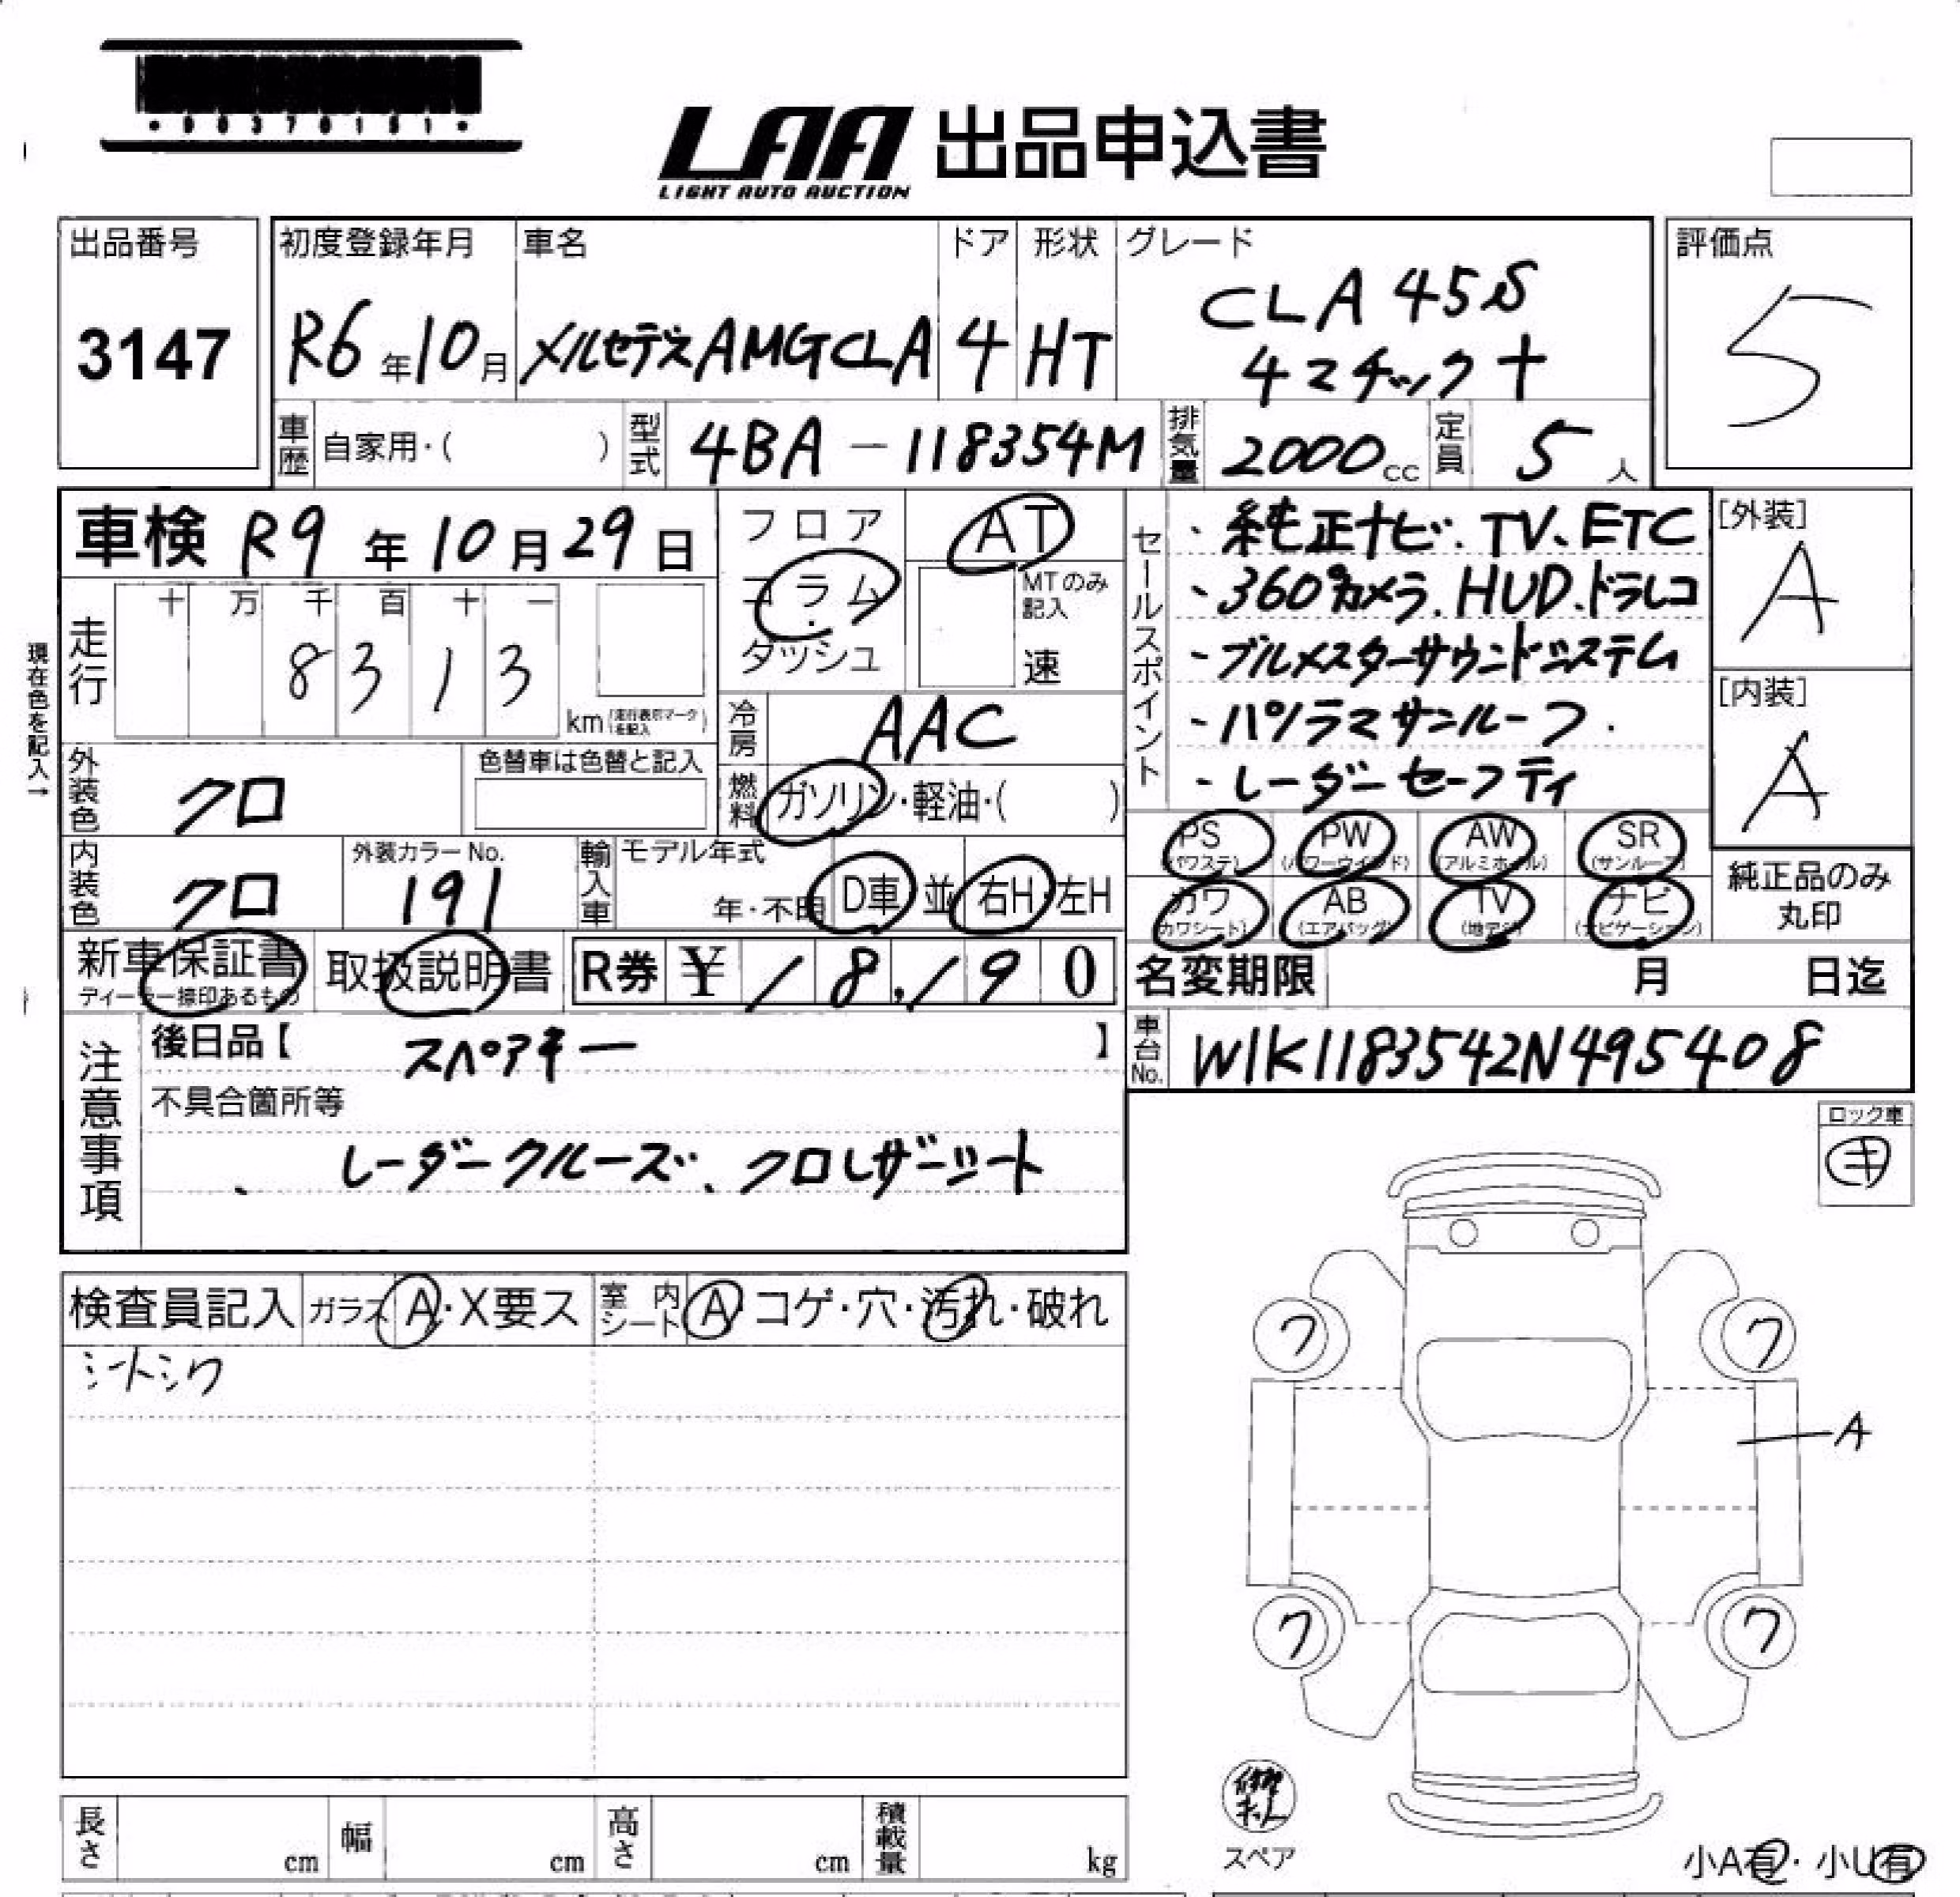 ・00370151・
LAA 出品申込書
LIGHT AUTO AUCTION
出品番号
3147
初度登録年月
R6年10月
車名
メルセデスAMGCLA
ドア
4
形状
HT
グレード
CLA 45S
4マチック+
評価点
5
車歴
自家用・( )
型式
4BA-118354M
排気量
2000cc
定員
5人
車検 R9年10月29日
走行
十 万 千 百 十 一
8 3 1 3
km(走行表示マークを記入)
現在色を記入→
フロア
コラム
ダッシュ
AT
MTのみ
記入
速
冷房
AAC
燃料
ガソリン・軽油・( )
セールスポイント
・純正ナビ、TV、ETC
・360°カメラ、HUD、ドラレコ
・ブルメスターサウンドシステム
・パノラマサンルーフ.
・レーダーセーフティ
[外装]
A
[内装]
A
外装色
クロ
色替車は色替と記入
内装色
クロ
外装カラーNo.
191
輸入車
モデル年式
年・不明
D車 並 右H・左H
PS PW AW SR
(パワステ) (パワーウインド) (アルミホイル) (サンルーフ)
カワ AB TV ナビ
(カワシート) (エアバッグ) (地デジ) (ナビゲーション)
純正品のみ
丸印
新車保証書
ディーラー捺印あるもの
取扱説明書
R券 ¥ / 8, / 9 0
名変期限 月 日迄
注意事項
後日品【 スペアキー 】
不具合箇所等
、 レーダークルーズ、クロレザーシート
車台No.
W1K1183542N495408
ロック車
キ
検査員記入
ガラス A・X要ス
室内シート A・コゲ・穴・汚れ・破れ
シートシワ
ワ ワ
A
ワ ワ
修理キット
スペア
小A有・小U有
長さ cm
幅 cm
高さ cm
積載量 kg